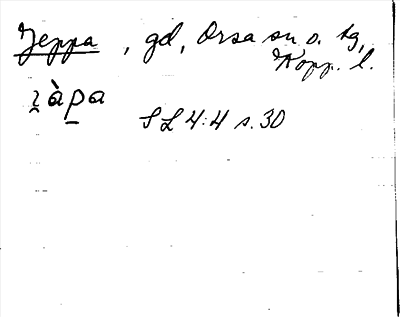 Jeppa, gd, Orsa sn o. tg,
Kopp. l.
àpa
SL 4:4 s. 30